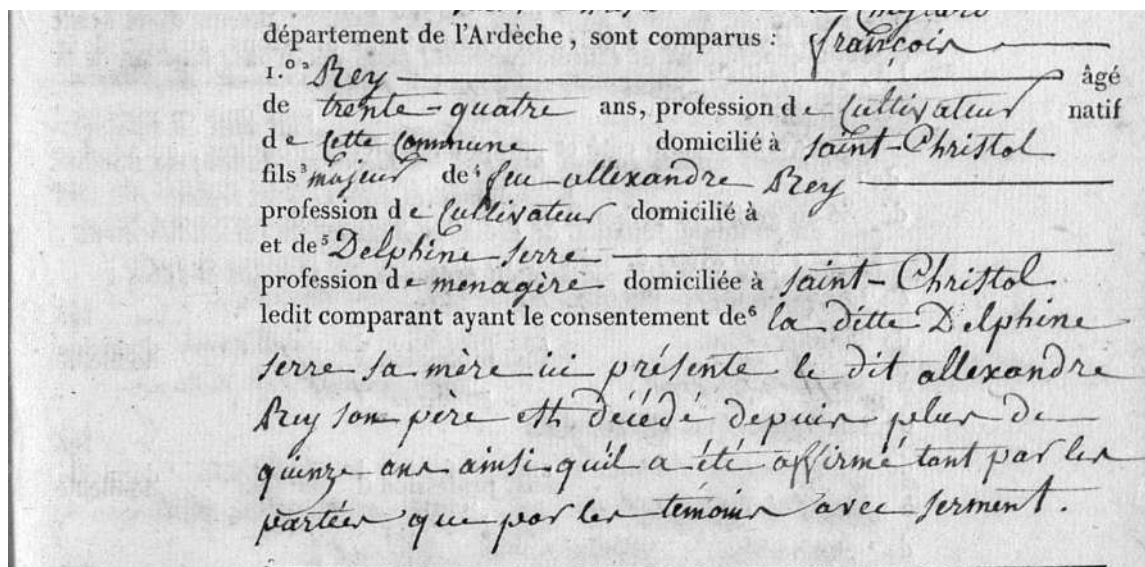 département de l'Ardèche, sont comparus : françois
1.º ² Rey âgé
de trente-quatre ans, profession de Cultivateur natif
de Cette Commune domicilié à saint-Christol
fils ³ majeur de ⁴ feu allexandre Rey
profession de Cultivateur domicilié à
et de ⁵ Delphine serre
profession de menagère domiciliée à saint-Christol
ledit comparant ayant le consentement de ⁶ la ditte Delphine
serre sa mère ici présente le dit allexandre
Rey son père est décédé depuis plus de
quinze ans ainsi quil a été affirmé tant par les
parties que par les témoins avec serment.